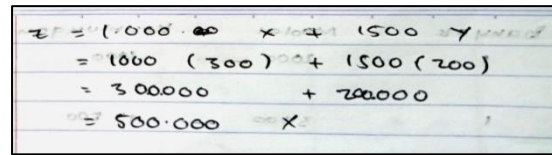 z = 1.000.00 x + 1500 y
= 1000 (300) + 1500 (200)
= 300.000 + 200.000
= 500.000 X